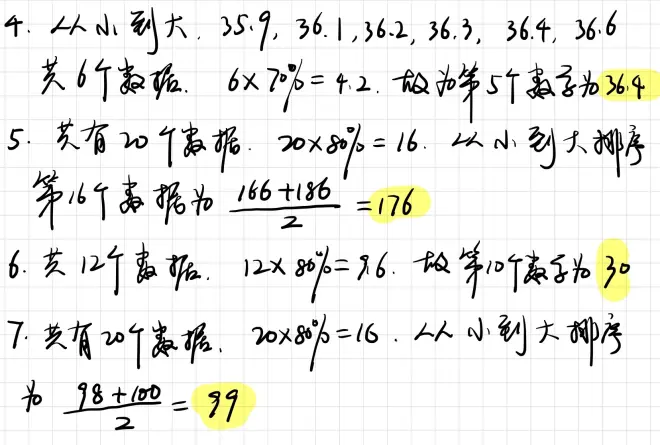 4. 从小到大. 35.9, 36.1, 36.2, 36.3, 36.4, 36.6
共6个数据. 6×70%=4.2. 故为第5个数字为36.4
5. 共有20个数据. 20×80%=16. 从小到大排序
第16个数据为 (166+186)/2 =176
6. 共12个数据. 12×80%=9.6. 故第10个数字为30
7. 共有20个数据. 20×80%=16. 从小到大排序
为 (98+100)/2 = 99